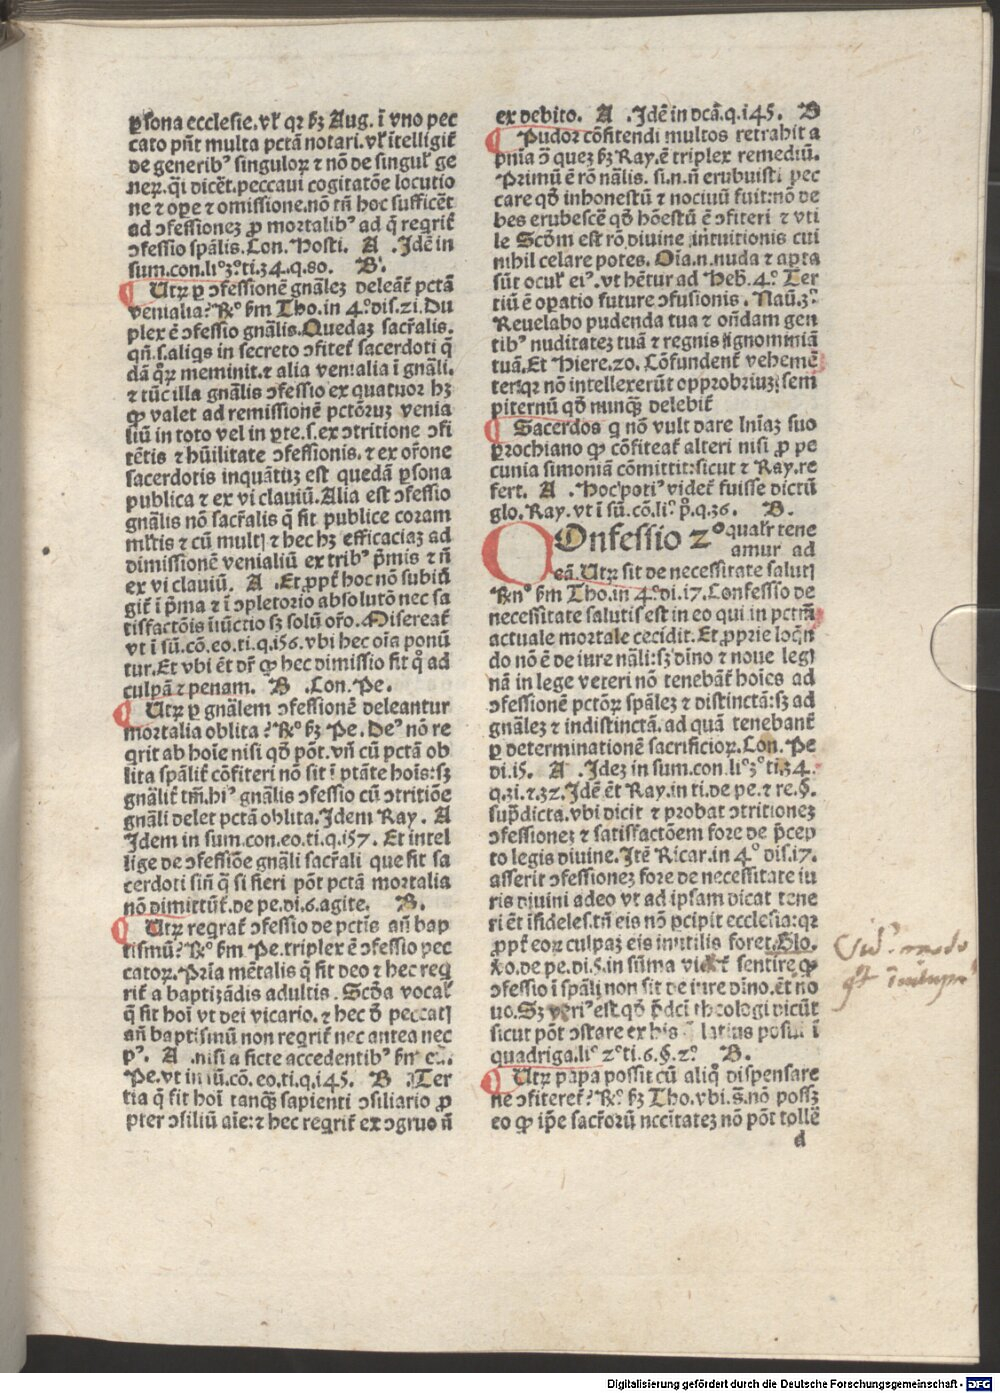 ꝑsona ecclesie.vl̕ qꝛ ẜꝫ Aug. ī vno pec
cato pn̄t multa pctā notari.vl̕ ītelligit̕
de generibꝰ singuloꝝ ⁊ nō de singul̕ ge
neꝝ.q̄i dicēt.peccaui cogitatōe locutio
ne ⁊ oꝑe ⁊ omissione.nō tn̄ hoc sufficēt
ad ꝯfessioneꝫ ꝓ mortalibꝰ ad q̄ reqrit̕
ꝯfessio sp̄alis.Con. Hosti. A .Jdē in
sum.con.liº.3º.ti.34.q.80. B.
Utꝝ ꝑ ꝯfessionē gn̄aleꝫ deleāt̕ pctā
venialia? ℞º ẜm Tho.in 4.º dis.21.Du
plex ē ꝯfessio gn̄alis.Quedaꝫ sacr̄alis.
qn̄.s.aliqs in secreto ꝯfitet̕ sacerdoti q̄
dā qꝝ meminit.⁊ alia venialia ī gn̄ali.
⁊ tūc illa gn̄alis ꝯfessio ex quatuor hꝫ
ꝙ valet ad remissionē pctōꝝ venia
liū in toto vel in ꝑte.s.ex ꝯtritione ꝯfi
tētis ⁊ hūilitate ꝯfessionis.⁊ ex or̄one
sacerdotis inquātuꝫ est quedā ꝑsona
publica ⁊ ex vi clauiū.Alia est ꝯfessio
gn̄alis nō sacr̄alis q̄ fit publice coram
ml̕tis ⁊ cū multꝭ ⁊ hec hꝫ efficaciaꝫ ad
dimissionē venialiū ex tribꝰ p̄mis ⁊ n̄
ex vi clauiū. A .Et ꝓpt̕ hoc nō subiū
git̕ ī p̄ma ⁊ ī ꝯpletorio absolutō nec sa
tisfactōis īiūctio sꝫ solū or̄o.Misereat̕
vt ī sū.cō.eo.ti.q.156.vbi hec oīa ponū
tur.Et vbi ēt dr̄ ꝙ hec dimissio fit q̊ ad
culpā ⁊ penam. B .Con.Pe.
Utꝝ ꝑ gn̄alem ꝯfessionē deleantur
mortalia oblita? ℞º ẜꝫ Pe.Deꝰ nō re
qrit ab hoīe nisi qd̄ pōt.vn̄ cū pctā ob
lita sp̄alit̕ cōfiteri nō sit ī ptāte hoīs:sꝫ
gn̄alit̕ tm̄.hiꝰ gn̄alis ꝯfessio cū ꝯtritiōe
gn̄ali delet pctā oblita.Jdem Ray. A
Jdem in sum.con.eo.ti.q.157. Et intel
lige de ꝯfessiōe gn̄ali sacr̄ali que fit sa
cerdoti sin̄ q̄ si fieri pōt pctā mortalia
nō dimittūt̕.de pe.di.6.agite. B.
Utꝝ reqrat̕ ꝯfessio de pctīs an̄ bap
tismū? ℞º ẜm Pe.triplex ē ꝯfessio pec
catoꝝ.Pria mētalis q̄ fit deo ⁊ hec req
rit̕ a baptizādis adultis. Scd̄a vocal̕
q̄ fit hoī vt dei vicario.⁊ hec d̄ peccatꝭ
an̄ baptismū non reqrit̕ nec antea nec
pꝰ. A .nisi a ficte accedentibꝰ ẜm
Pe.vt in sū.cō.eo.ti.q.145. B .Ter
tia q̄ fit hoī tanqꝫ sapienti ꝯsiliario ꝓ
pter ꝯsiliū aīe:⁊ hec reqrit̕ ex ꝯgruo n̄
ex debito. A .Jdē in dcā.q.145. B
Pudor cōfitendi multos retrahit a
pn̄ia ꝯ̄ queꝫ ẜꝫ Ray.ē triplex remediū.
Primū ē rō nālis. si.n.n̄ erubuisti pec
care qd̄ inhonestū ⁊ nociuū fuit:nō de
bes erubescē qd̄ hōestū ē ꝯfiteri ⁊ vti
le Scd̄m est rō diuine intuitionis cui
nihil celare potes.Oīa.n.nuda ⁊ aꝑta
sūt ocul̕ eiꝰ.vt hētur ad Heb.4.º Ter
tiū ē oꝑatio future ꝯfusionis. Naū.3º
Reuelabo pudenda tua ⁊ on̄dam gen
tibꝰ nuditateꝫ tuā ⁊ regnis ignominiā
tuā.Et Hiere.20. Cōfundent̕ vehemē
ter:qꝛ nō intellexerūt opprobriuꝫ sem
piternū qd̄ nunqꝫ delebit̕
Sacerdos q nō vult dare lnīaꝫ suo
ꝑrochiano ꝙ cōfiteat̕ alteri nisi ꝓ pe
cunia simoniā cōmittit:sicut ⁊ Ray.re
fert. A .Hoc potiꝰ videt̕ fuisse dictū
glo.Ray.vt ī sū.cō.liº.p̊.q.36. B.
COnfessio 2º qualr̄ tene
amur ad
eā.Utꝝ sit de necessitate salutꝭ
℞nº ẜm Tho.in 4.º di.17.Confessio de
necessitate salutis est in eo qui in pctm̄
actuale mortale cecidit.Et ꝓprie loqn̄
do nō ē de iure nāli:sꝫ dīno ⁊ noue legꝭ
nā in lege veteri nō tenebāt̕ hoīes ad
ꝯfessionē pctōꝝ sp̄aleꝫ ⁊ distinctā:sꝫ ad
gn̄aleꝫ ⁊ indistinctā.ad quā tenebant̕
ꝑ determinationē sacrificioꝝ.Con. Pe
di.15. A .Jdeꝫ in sum.con.liº.3º.ti.34.
q.31.⁊.32.Jdē ēt Ray.in ti.de pe.⁊ re.§.
sup̄dicta.vbi dicit ⁊ probat ꝯtritioneꝫ
ꝯfessioneꝫ ⁊ satisfactōem fore de p̄cep
to legis diuine.Jtē Ricar.in 4.º dis.17.
asserit ꝯfessioneꝫ fore de necessitate iu
ris diuini adeo vt ad ipsam dicat tene
ri ēt īfideles.tn̄ eis nō p̄cipit ecclesia:qꝛ
ꝓpt̕ eoꝝ culpaꝫ eis inutilis foret.Glo.
ꝟo.de pe.di.5.in sūma videt̕ sentire ꝙ
ꝯfessio ī sp̄ali non sit de iure dīno.ēt no
uo.Sꝫ veriꝰ est qd̄ p̄dci theologi dicūt
sicut pōt ꝯstare ex his q̄ latius posui ī
quadriga.liº 2º ti.6.§.2º B.
Utꝝ papa possit cū aliq̊ dispensare
ne ꝯfiteret̕? ℞º ẜꝫ Tho.vbi.s̄.nō possꝫ
eo ꝙ ip̄e sacr̄orū nccitateꝫ nō pōt tollē
d
Digitalisierung gefördert durch die Deutsche Forschungsgemeinschaft - DFG